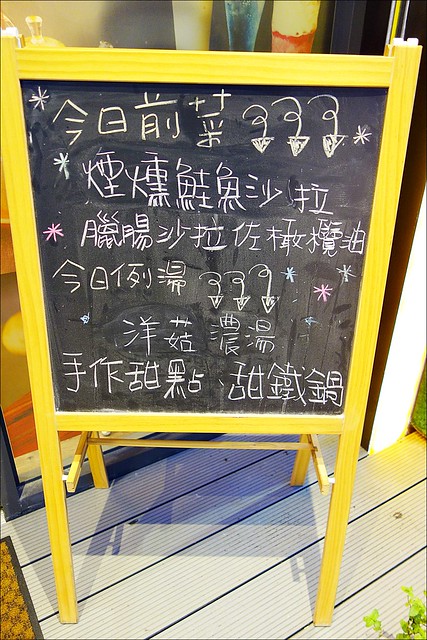 今日前菜
煙燻鮭魚沙拉
臘腸沙拉佐橄欖油
今日例湯
洋菇濃湯
手作甜點、甜鐵鍋